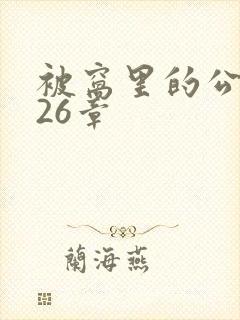 被窝里的公
26章
蘭海燕